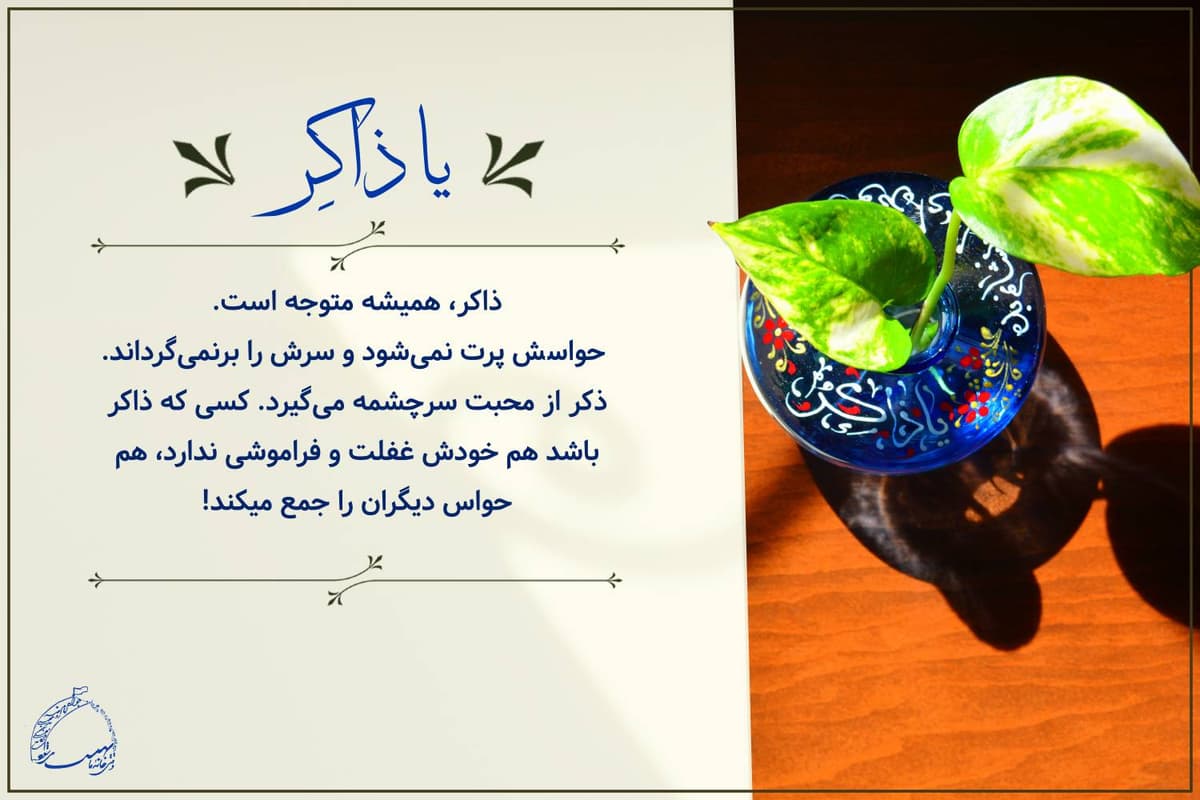 یا ذاکِر
ذاکر، همیشه متوجه است.
حواسش پرت نمی‌شود و سرش را برنمی‌گرداند.
ذکر از محبت سرچشمه می‌گیرد. کسی که ذاکر
باشد هم خودش غفلت و فراموشی ندارد، هم
حواس دیگران را جمع میکند!
یا ذاکر